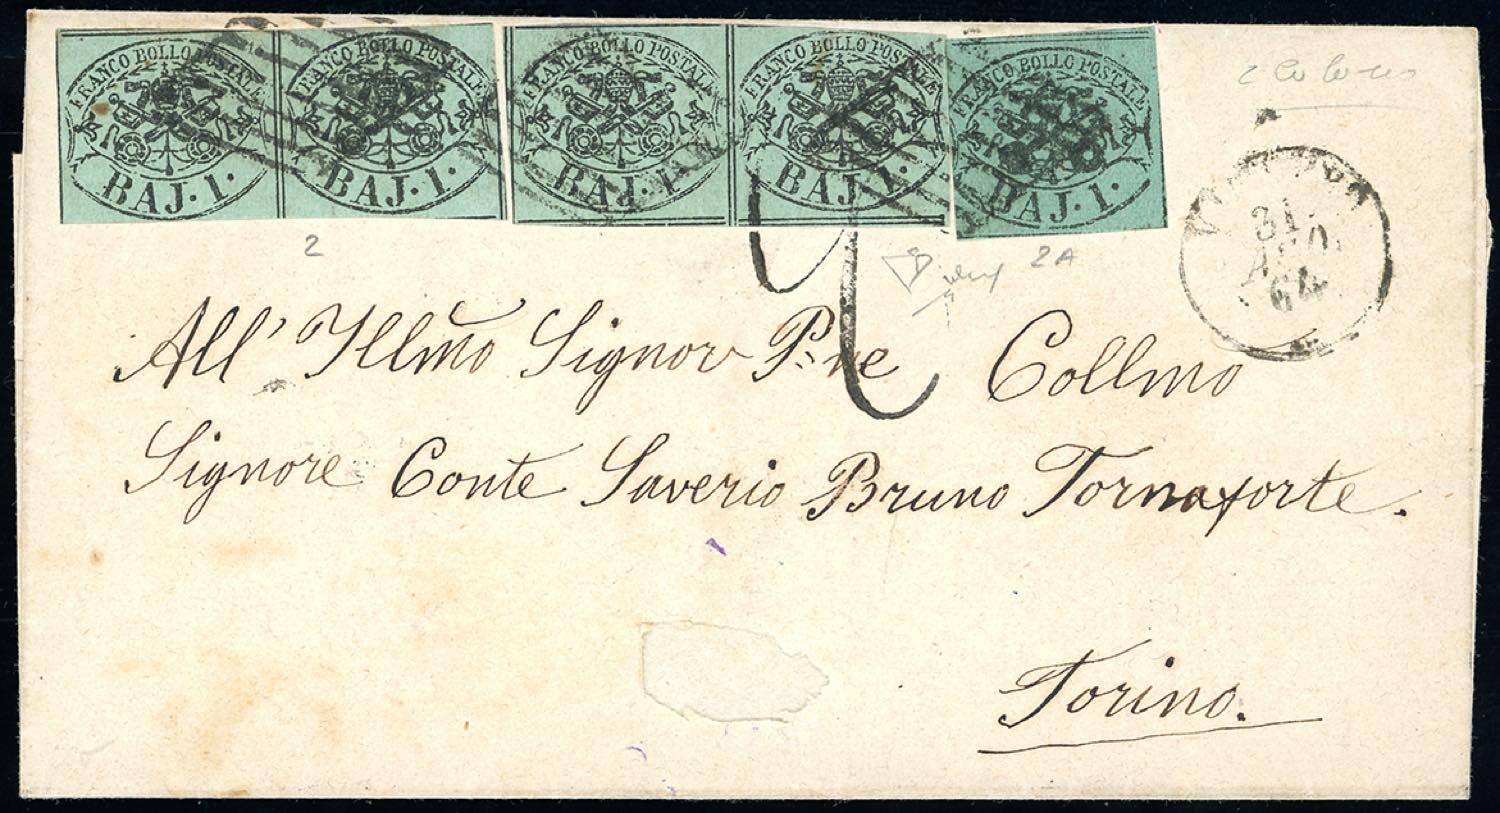 FRANCO BOLLO POSTALE
BAJ. 1.
FRANCO BOLLO POSTALE
BAJ. 1.
FRANCO BOLLO POSTALE
BAJ. 1.
FRANCO BOLLO POSTALE
BAJ. 1.
FRANCO BOLLO POSTALE
BAJ. 1.
31
AGO.
64
2
2A
All' Illmo Signor P.ne Collmo
Signore Conte Saverio Bruno Tornaforte.
Torino.